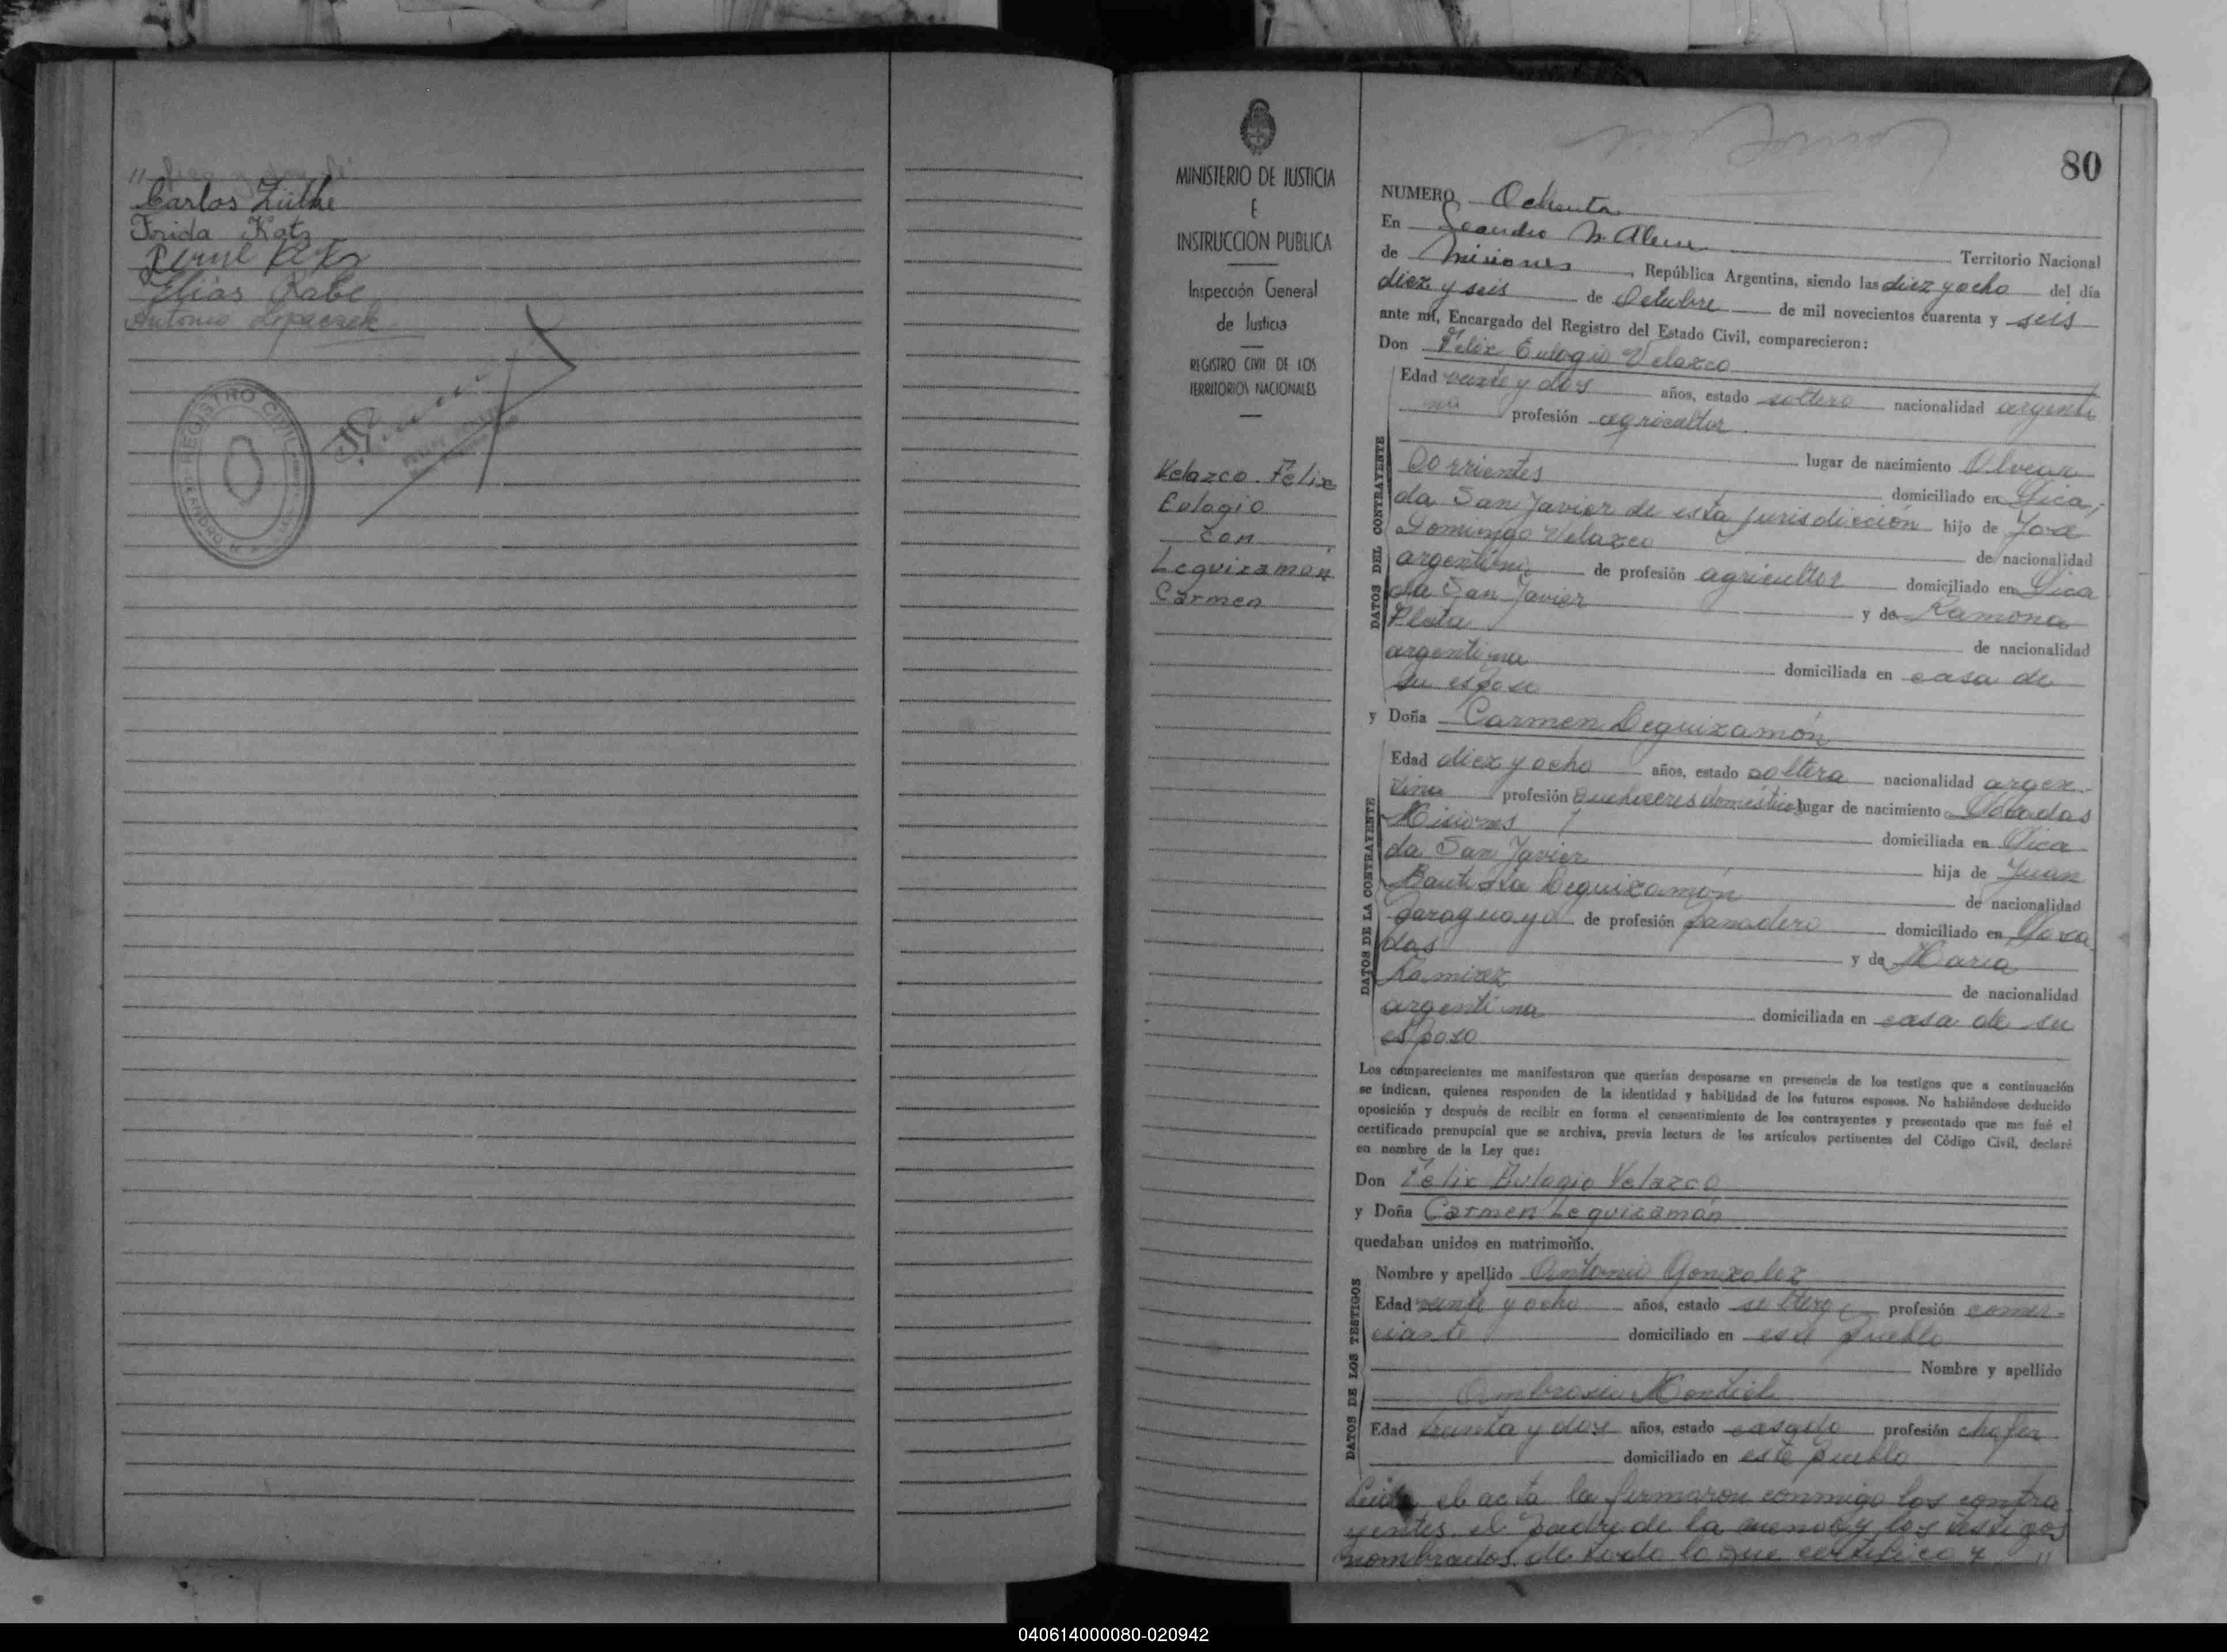 Carlos Lüthe
Frida Katz
Elias Rabe
Antonio Lipaczek
REGISTRO CIVIL
MINISTERIO DE JUSTICIA
E
INSTRUCCION PUBLICA
Inspección General
de Justicia
REGISTRO CIVIL DE LOS
TERRITORIOS NACIONALES
Velazco Felix
Eulogio
con
Leguizamón
Carmen
80
NUMERO Ochenta
En Leandro N. Alem Territorio Nacional
de Misiones, República Argentina, siendo las diez y ocho del día
diez y seis de Octubre de mil novecientos cuarenta y seis
ante mí, Encargado del Registro del Estado Civil, comparecieron:
Don Felix Eulogio Velazco
DATOS DEL CONTRAYENTE
Edad veinte y dos años, estado soltero nacionalidad argenti
no profesión agricultor
lugar de nacimiento Alvear
Corrientes domiciliado en Pica-
da San Javier de esta jurisdicción hijo de José
Domingo Velazco de nacionalidad
argentino de profesión agricultor domiciliado en Pica
da San Javier y de Ramona
de nacionalidad
argentina domiciliada en casa de
su esposo
y Doña Carmen Leguizamón
DATOS DE LA CONTRAYENTE
Edad diez y ocho años, estado soltera nacionalidad argen-
tina profesión quehaceres domésticos lugar de nacimiento Posadas
Misiones domiciliada en Pica
da San Javier hija de Juan
Bautista Leguizamón de nacionalidad
paraguayo de profesión panadero domiciliado en Posa
das y de Maria
Ramirez de nacionalidad
argentina domiciliada en casa de su
esposo
Los comparecientes me manifestaron que querían desposarse en presencia de los testigos que a continuación
se indican, quienes responden de la identidad y habilidad de los futuros esposos. No habiéndose deducido
oposición y después de recibir en forma el consentimiento de los contrayentes y presentado que me fué el
certificado prenupcial que se archiva, previa lectura de los artículos pertinentes del Código Civil, declaré
en nombre de la Ley que:
Don Felix Eulogio Velazco
y Doña Carmen Leguizamón
quedaban unidos en matrimonio.
DATOS DE LOS TESTIGOS
Nombre y apellido Antonio Gonzalez
Edad veinte y ocho años, estado soltero profesión comer-
ciante domiciliado en este pueblo
Nombre y apellido
Ambrosio Montiel
Edad treinta y dos años, estado casado profesión chofer
domiciliado en este pueblo
Leida el acta la firmaron conmigo los contra
yentes, el padre de la menor y los testigos
nombrados de todo lo que certifico y "
040614000080-020942